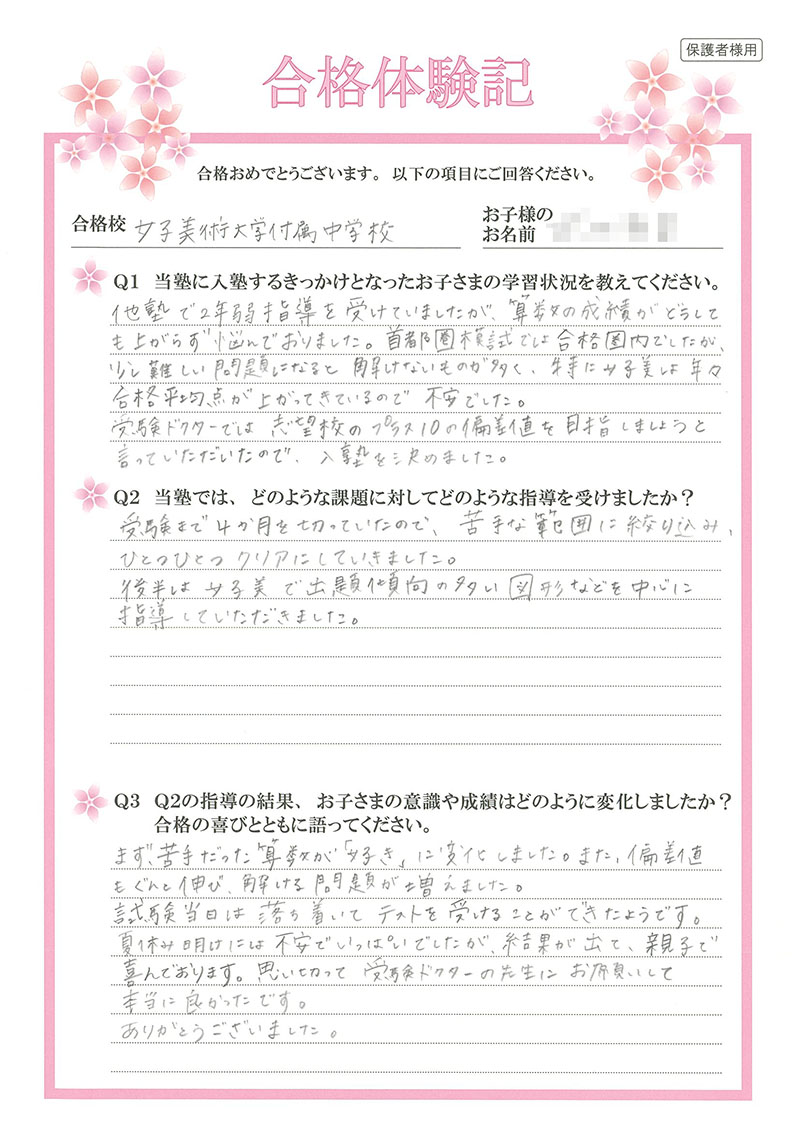 保護者様用
合格体験記
合格おめでとうございます。以下の項目にご回答ください。
合格校 女子美術大学付属中学校
お子様の
お名前
Q1 当塾に入塾するきっかけとなったお子さまの学習状況を教えてください。
他塾で2年弱指導を受けていましたが、算数の成績がどうして
も上がらず悩んでおりました。首都圏模試では合格圏内でしたが、
少し難しい問題になると解けないものが多く、特に女子美は年々
合格平均点が上がってきているので不安でした。
受験ドクターでは志望校のプラス10の偏差値を目指しましょうと
言っていただいたので、入塾を決めました。
Q2 当塾では、どのような課題に対してどのような指導を受けましたか?
受験まで4か月を切っていたので、苦手な範囲に絞り込み、
ひとつひとつクリアにしていきました。
後半は女子美で出題傾向の多い図形などを中心に
指導していただきました。
Q3 Q2の指導の結果、お子さまの意識や成績はどのように変化しましたか?
合格の喜びとともに語ってください。
まず、苦手だった算数が「好き」に変化しました。また、偏差値
もぐんと伸び、解ける問題が増えました。
試験当日は落ち着いてテストを受けることができたようです。
夏休み明けには不安でいっぱいでしたが、結果が出て、親子で
喜んでおります。思い切って受験ドクターの先生にお願いして
本当に良かったです。
ありがとうございました。